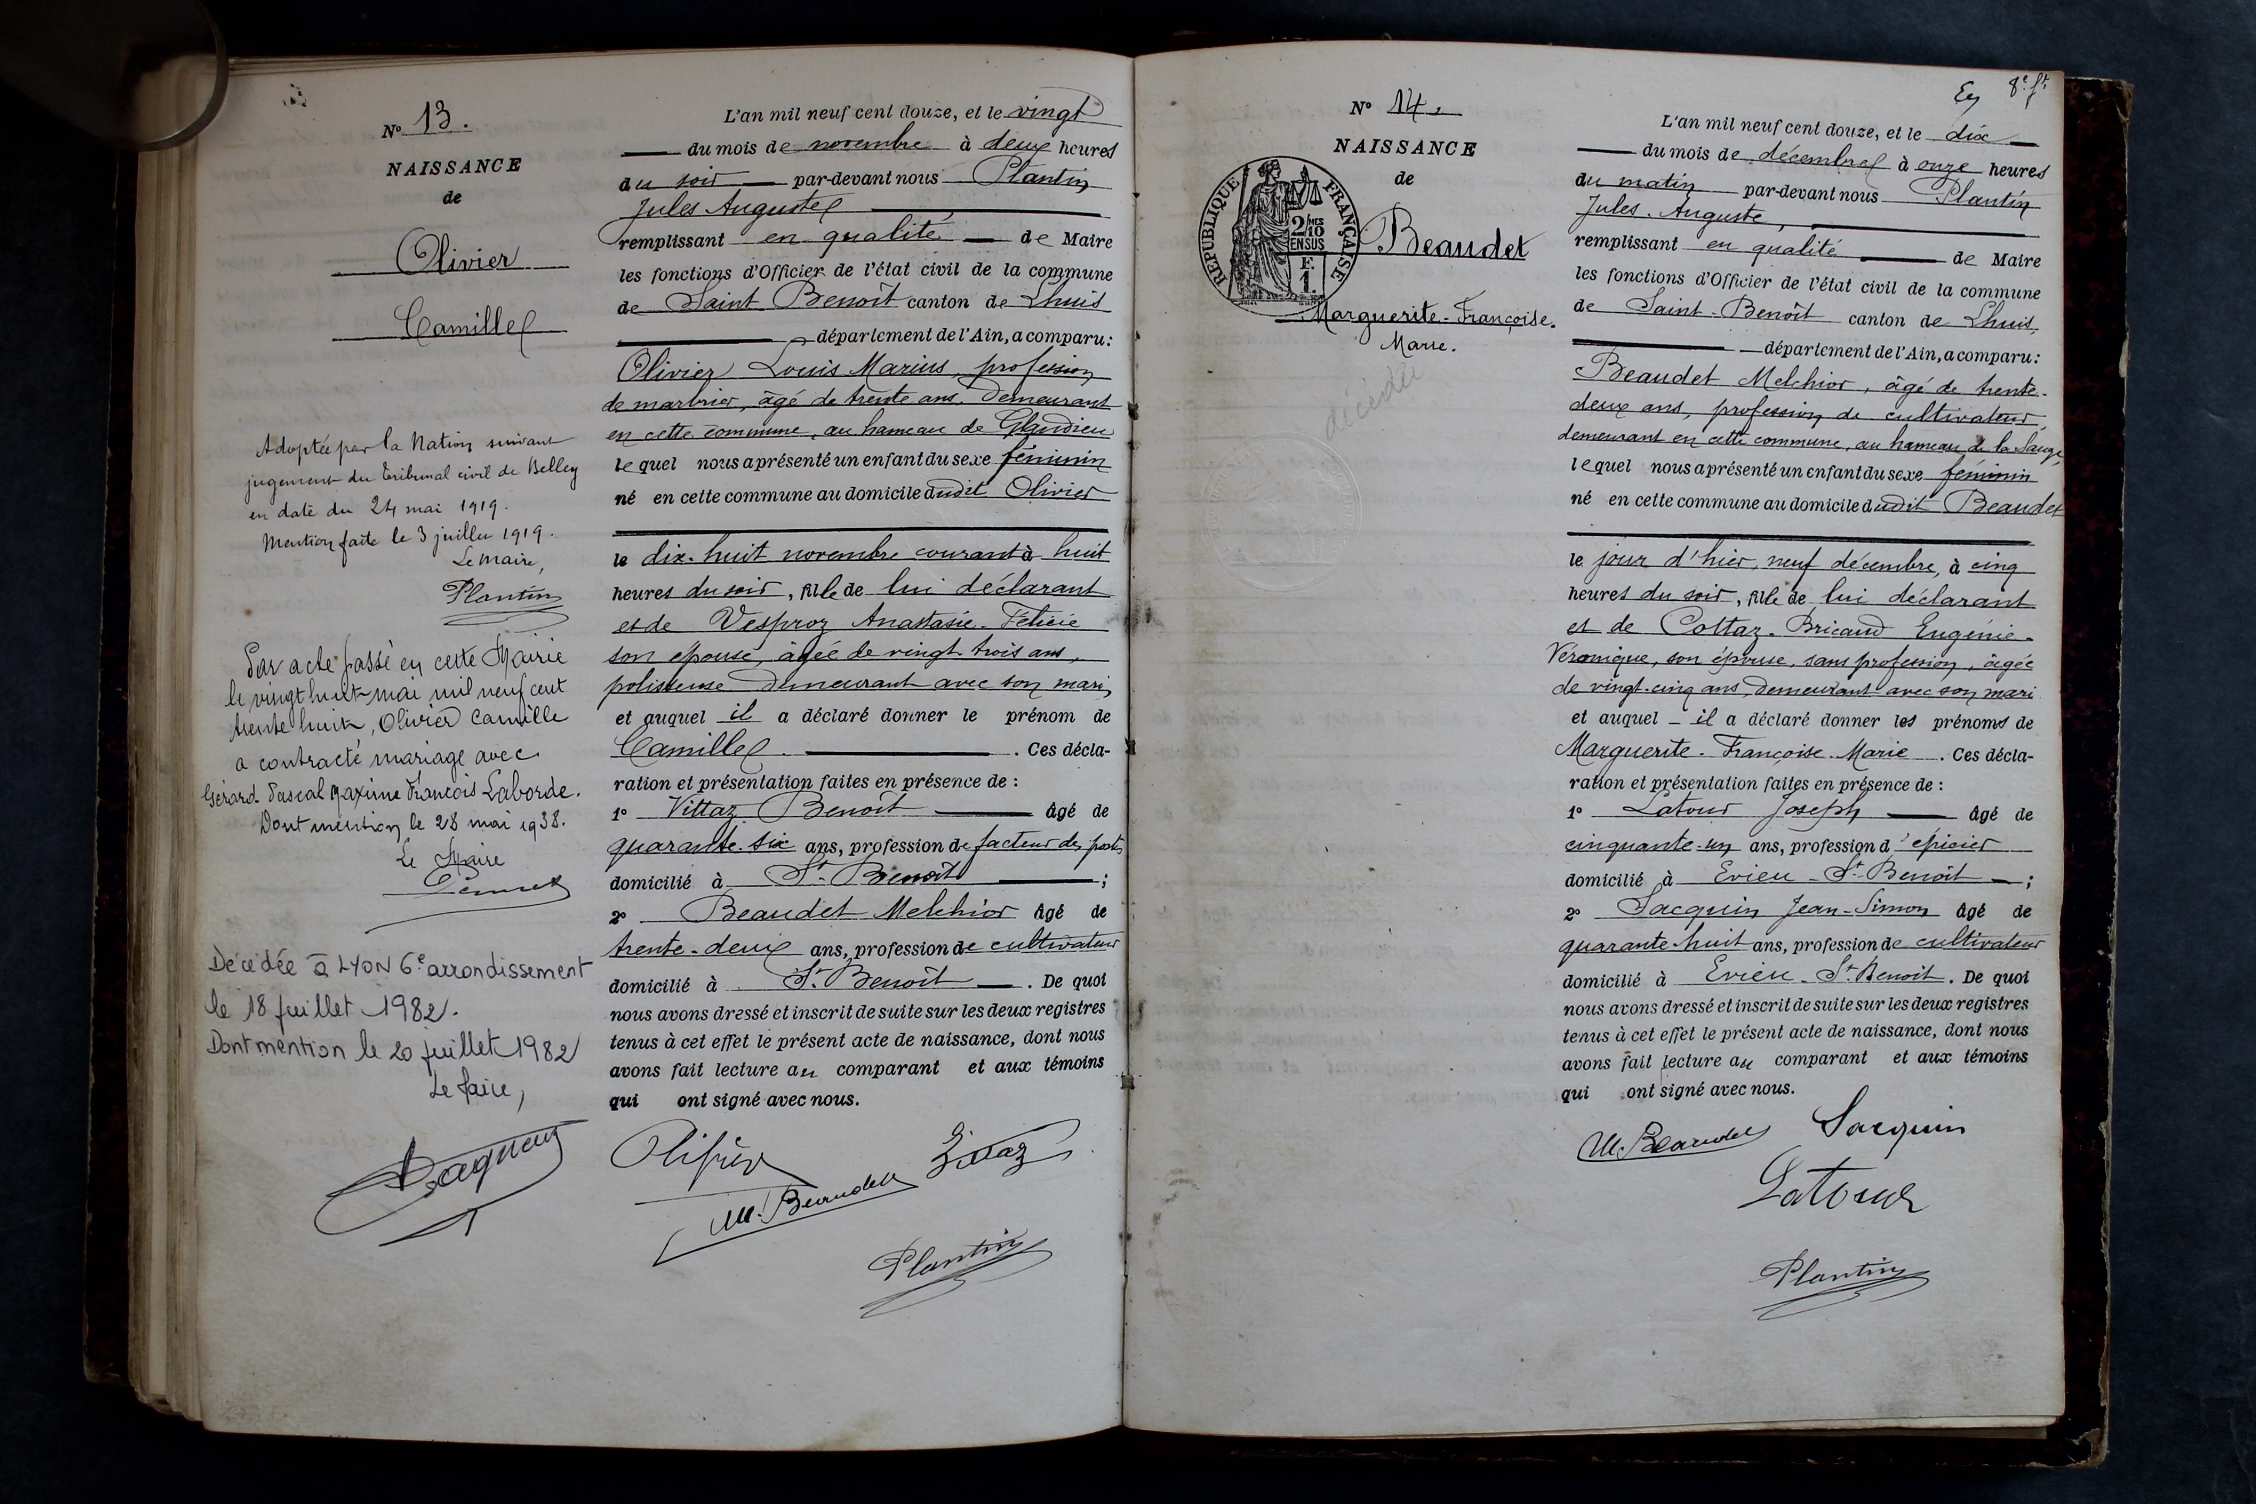 N° 13.
NAISSANCE
de
Olivier
Camille
Adoptée par la Nation suivant
jugement du Tribunal civil de Belley
en date du 24 mai 1919.
Mention faite le 3 juillet 1919.
Le maire,
Plantin
Par acte passé en cette Mairie
le vingt huit mai mil neuf cent
trente huit, Olivier Camille
a contracté mariage avec
Gérard Pascal Maxime François Laborde.
Dont mention le 28 mai 1938.
Le Maire
Décédée à LYON 6e arrondissement
le 18 juillet 1982.
Dont mention le 20 juillet 1982
Le Maire,
L'an mil neuf cent douze, et le vingt
du mois de novembre à deux heures
du soir par-devant nous Plantin
Jules Auguste
remplissant en qualité de Maire
les fonctions d'Officier de l'état civil de la commune
de Saint Benoît canton de Lhuis
département de l'Ain, a comparu:
Olivier Louis Marius, profession
de marbrier, âgé de trente ans, demeurant
en cette commune, au hameau de Glandieu
lequel nous a présenté un enfant du sexe féminin
né en cette commune au domicile dudit Olivier
le dix-huit novembre courant à huit
heures du soir, fille de lui déclarant
et de Vesproz Anastasie-Félicie
son épouse, âgée de vingt-trois ans,
polisseuse demeurant avec son mari,
et auquel il a déclaré donner le prénom de
Camille. Ces décla-
ration et présentation faites en présence de :
1° Vittaz Benoît âgé de
quarante-six ans, profession de facteur des postes
domicilié à St-Benoît ;
2° Beaudet Melchior âgé de
trente-deux ans, profession de cultivateur
domicilié à St-Benoît. De quoi
nous avons dressé et inscrit de suite sur les deux registres
tenus à cet effet le présent acte de naissance, dont nous
avons fait lecture au comparant et aux témoins
qui ont signé avec nous.
Olivier
Vittaz
M. Beaudet
Plantin
8e ft
N° 14.
NAISSANCE
de
RÉPUBLIQUE FRANÇAISE
2/10 MES
EN SUS
F.
1.
Beaudet
Marguerite-Françoise.
Marie.
décédée
L'an mil neuf cent douze, et le dix
du mois de décembre à onze heures
du matin par-devant nous Plantin
Jules-Auguste,
remplissant en qualité de Maire
les fonctions d'Officier de l'état civil de la commune
de Saint-Benoît canton de Lhuis,
département de l'Ain, a comparu:
Beaudet Melchior, âgé de trente-
deux ans, profession de cultivateur,
demeurant en cette commune, au hameau de la Sauge,
lequel nous a présenté un enfant du sexe féminin
né en cette commune au domicile dudit Beaudet
le jour d'hier, neuf décembre, à cinq
heures du soir, fille de lui déclarant
et de Cottaz-Bricaud Eugénie-
Véronique, son épouse, sans profession, âgée
de vingt-cinq ans, demeurant avec son mari
et auquel il a déclaré donner les prénoms de
Marguerite-Françoise-Marie. Ces décla-
ration et présentation faites en présence de :
1° Latour Joseph âgé de
cinquante-un ans, profession d'épicier
domicilié à Evieu-St-Benoît ;
2° Sacquin Jean-Simon âgé de
quarante-huit ans, profession de cultivateur
domicilié à Evieu-St-Benoît. De quoi
nous avons dressé et inscrit de suite sur les deux registres
tenus à cet effet le présent acte de naissance, dont nous
avons fait lecture au comparant et aux témoins
qui ont signé avec nous.
M. Beaudet
Sacquin
Latour
Plantin